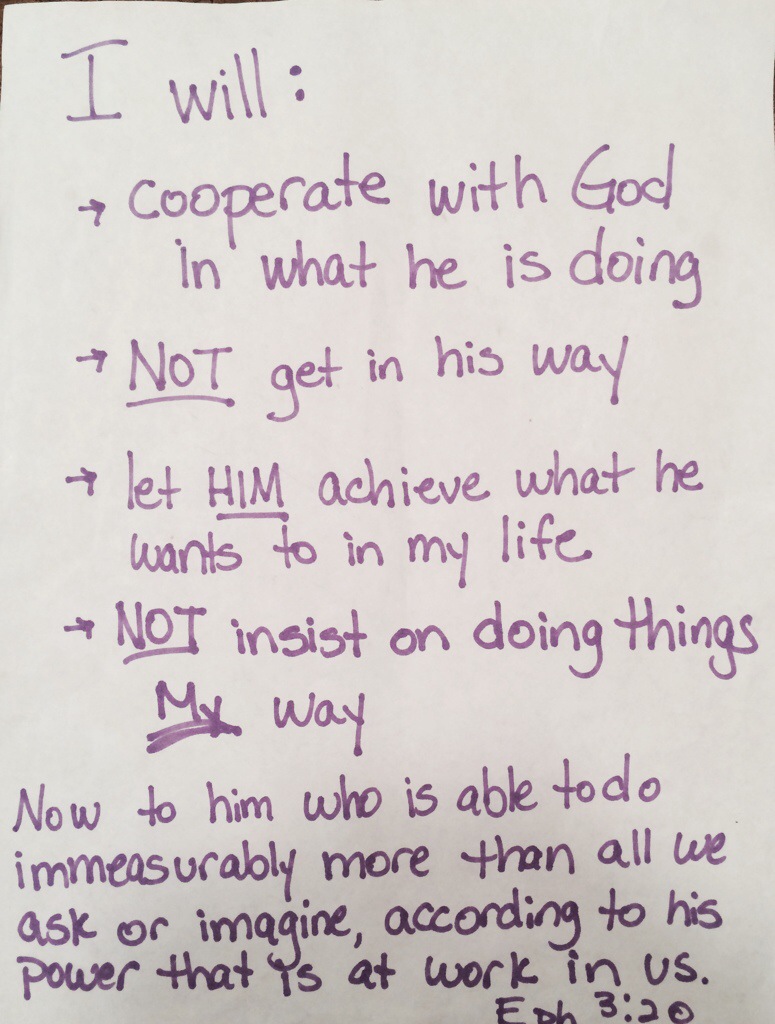 I will:
→ cooperate with God
in what he is doing
→ NOT get in his way
→ let HIM achieve what he
wants to in my life
→ NOT insist on doing things
My way
Now to him who is able to do
immeasurably more than all we
ask or imagine, according to his
power that is at work in us.
Eph 3:20